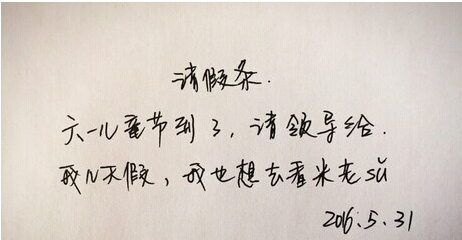 请假条.
六一儿童节到了,请领导给.
我N天假,我也想去看米老sǔ
2016.5.31